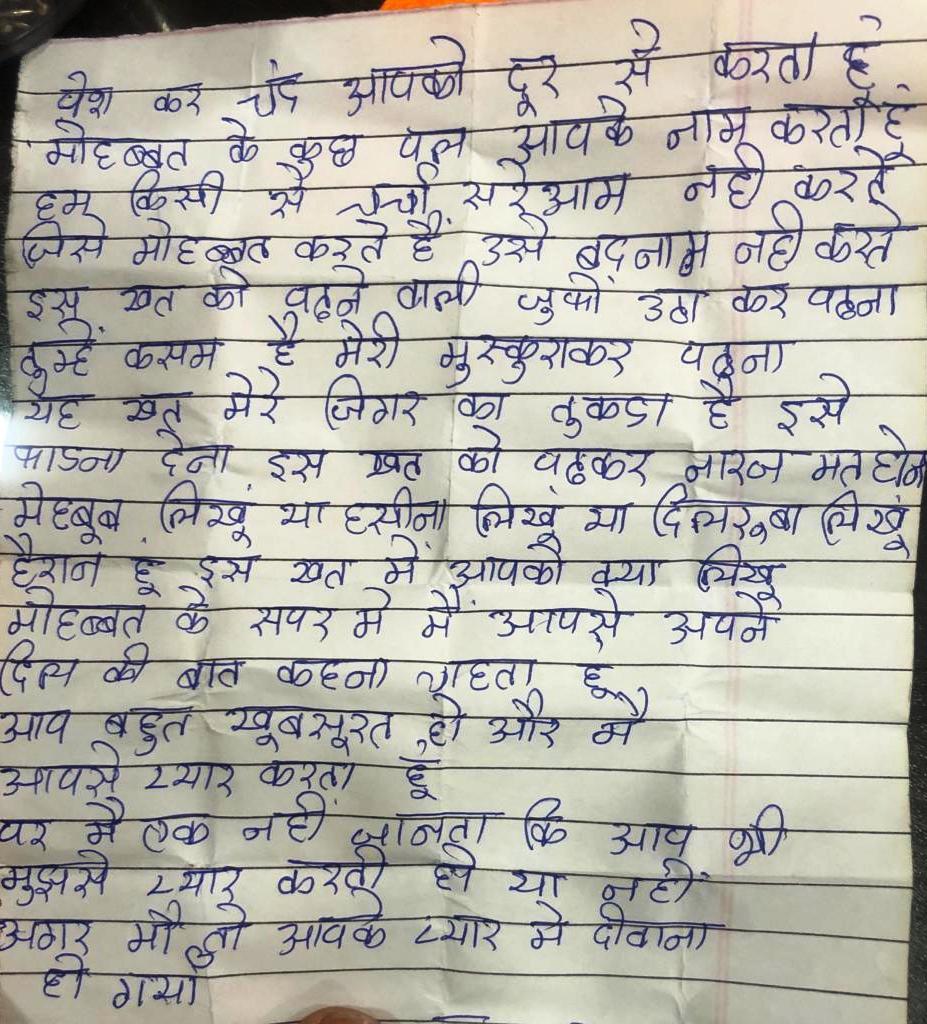 पेश कर चंद आपको दूर से करता है
मोहब्बत के कुछ पल आपके नाम करता हूं
हम किसी से चर्चा सरेआम नही करते
जिसे मोहब्बत करते हैं उसे बदनाम नही करते
इस खत को पढने वाली जुफो उठा कर पढना
तुम्हें कसम है मेरी मुस्कुराकर पढना
यह खत मेरे जिगर का तुकडा है इसे
फाडना देना इस खत को पढकर नारज मत होन
मेहबूब लिखूं या हसीना लिखूं या दिलरूबा लिखूं
हैरान हूं इस खत में आपको क्या लिखू
मोहब्बत के सपर मे मैं आपसे अपने
दिल की बात कहना चाहता हू
आप बहुत खूबसूरत हो और मै
आपसे प्यार करता हूं
पर मै एक नहीं जानता कि आप भी
मुझसे प्यार करती हो या नहीं
अगर मौ तो आपके प्यार मे दीवाना
हो गया